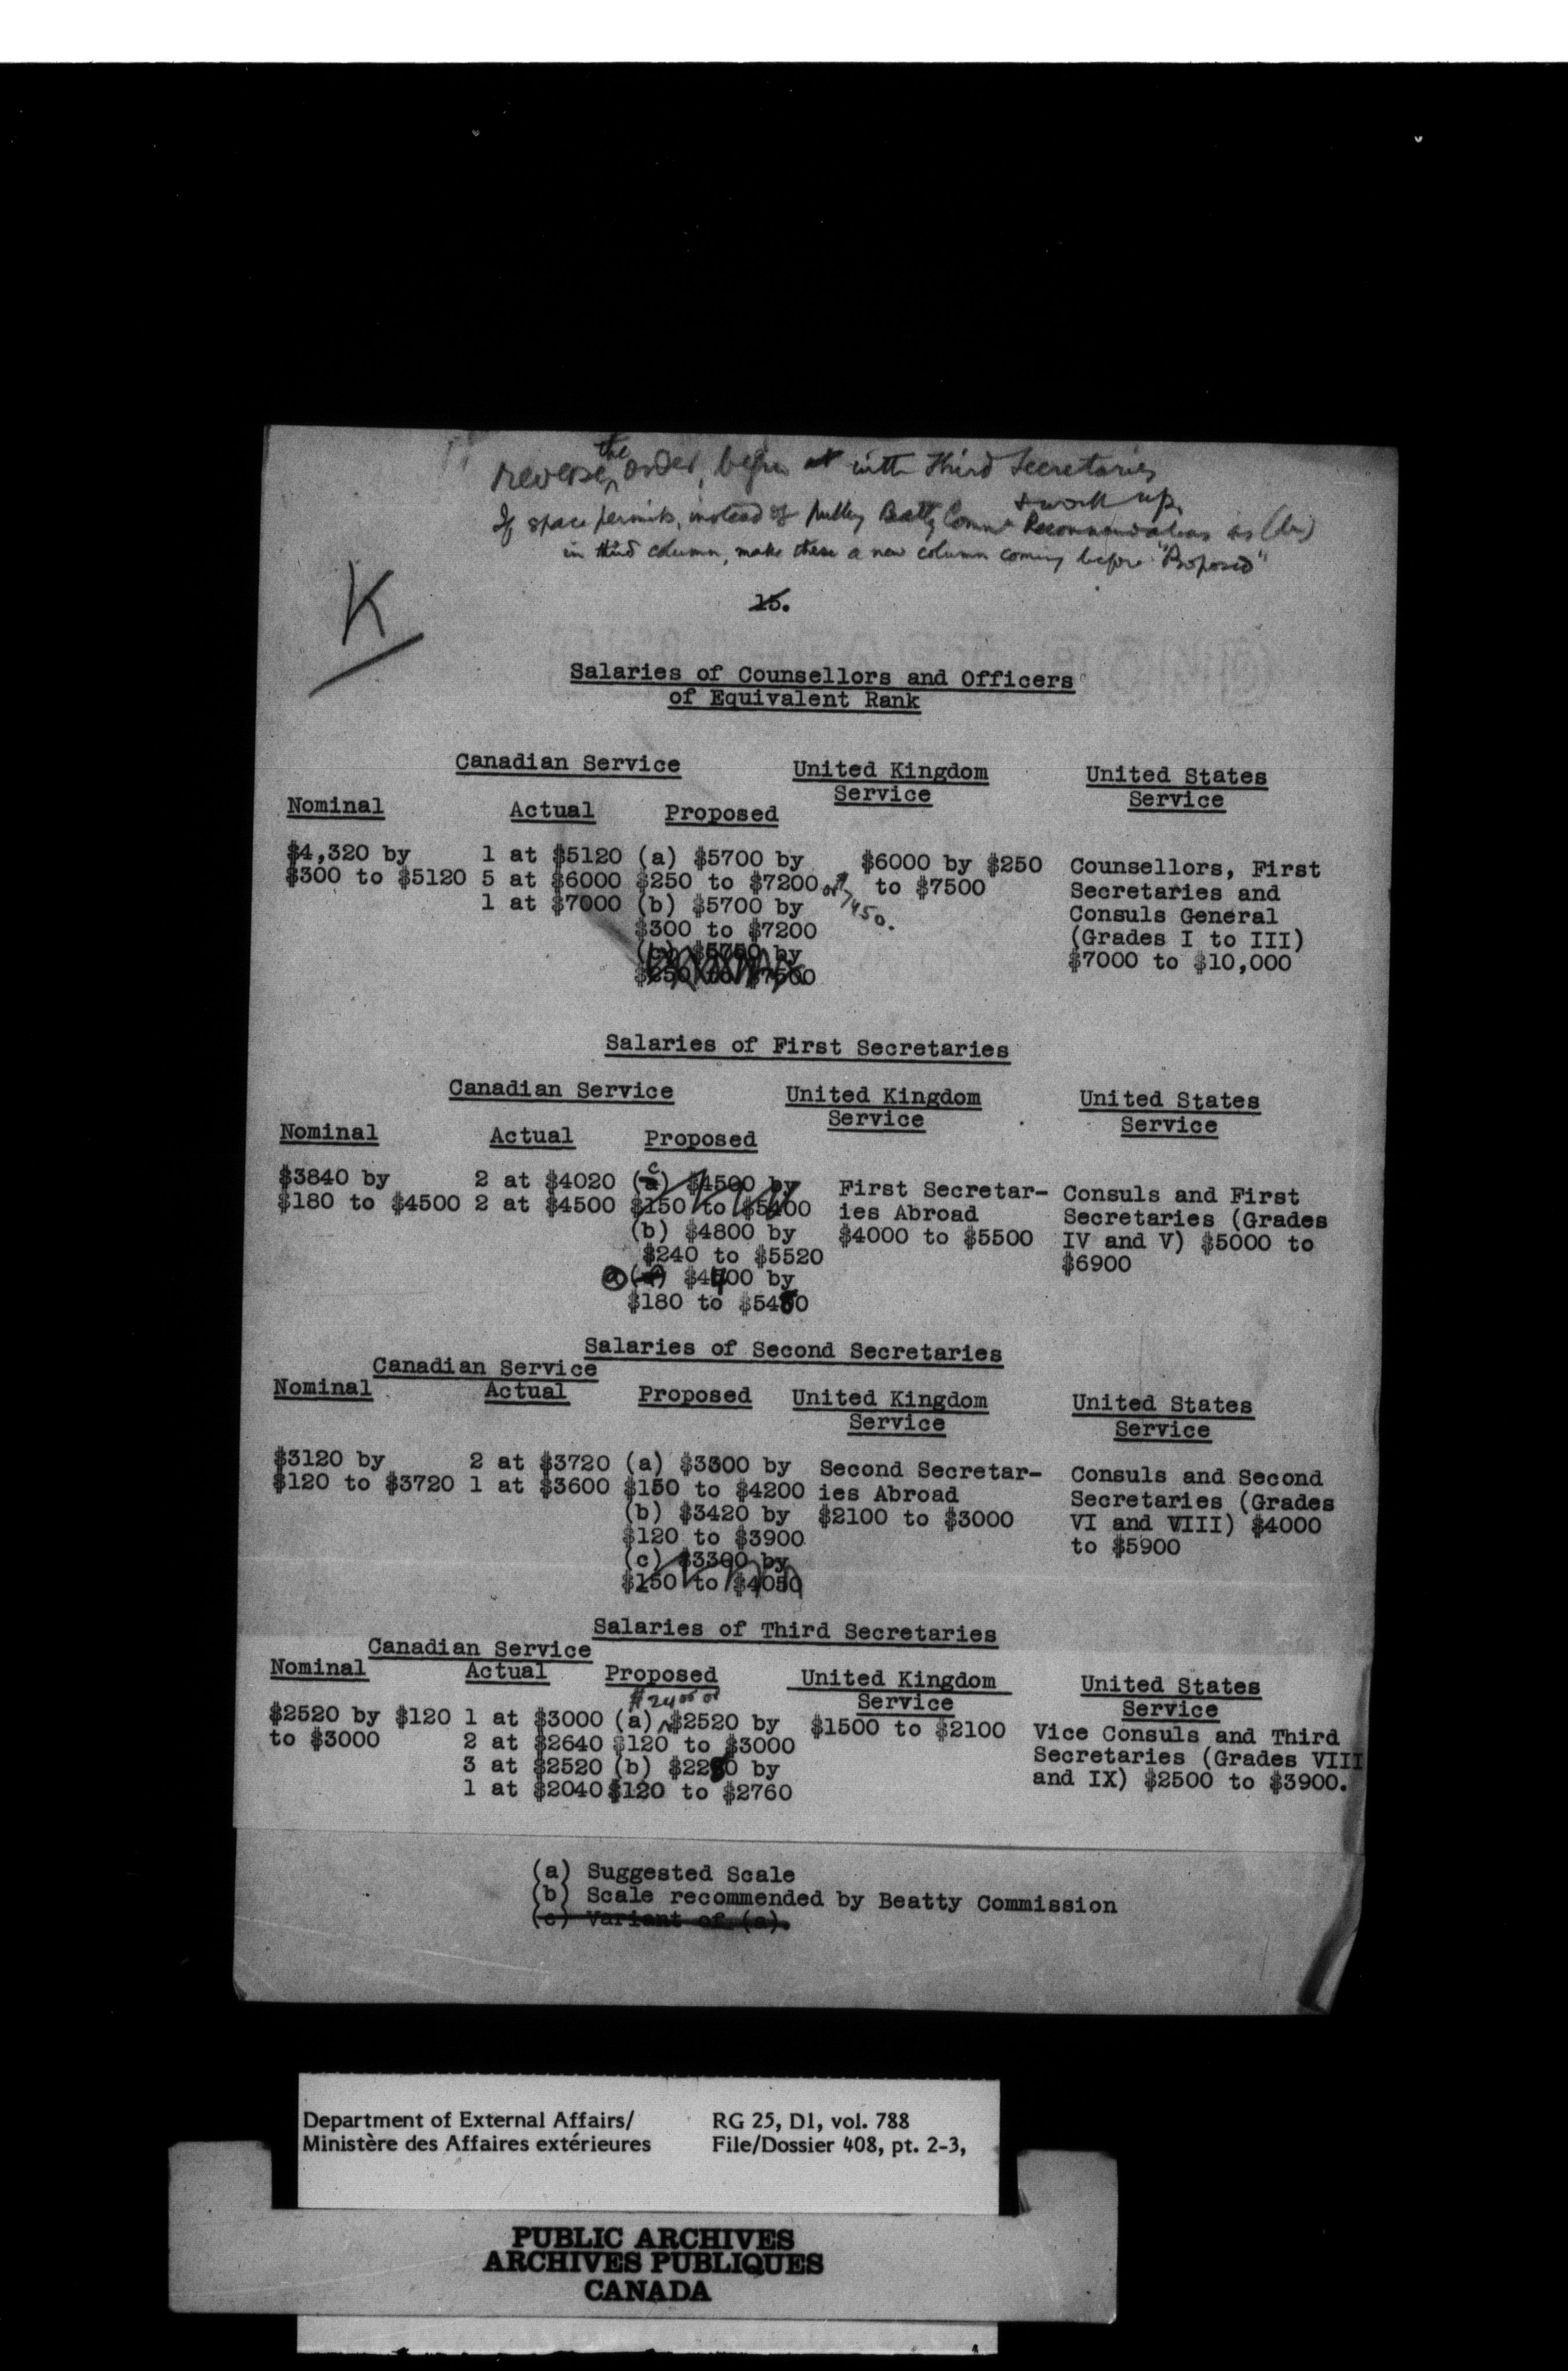 reverse the order, begin with Third Secretaries
& work up.
If space permits, instead of putting Beatty Comm Recommendations as (b)
in third column, make these a new column coming before "Proposed"
K
15.
Salaries of Counsellors and Officers
of Equivalent Rank
Canadian Service United Kingdom United States
Service Service
Nominal Actual Proposed
$4,320 by 1 at $5120 (a) $5700 by $6000 by $250 Counsellors, First
$300 to $5120 5 at $6000 $250 to $7200 or $7450. to $7500 Secretaries and
1 at $7000 (b) $5700 by Consuls General
$300 to $7200 (Grades I to III)
by $7000 to $10,000
Salaries of First Secretaries
Canadian Service United Kingdom United States
Service Service
Nominal Actual Proposed
$3840 by 2 at $4020 (c) $4500 by First Secretar- Consuls and First
$180 to $4500 2 at $4500 $150 to $5400 ies Abroad Secretaries (Grades
(b) $4800 by $4000 to $5500 IV and V) $5000 to
$240 to $5520 $6900
(a) by
$180 to
Salaries of Second Secretaries
Canadian Service
Nominal Actual Proposed United Kingdom United States
Service Service
$3120 by 2 at $3720 (a) $3300 by Second Secretar- Consuls and Second
$120 to $3720 1 at $3600 $150 to $4200 ies Abroad Secretaries (Grades
(b) $3420 by $2100 to $3000 VI and VIII) $4000
$120 to $3900 to $5900
(c) $3300 by
$150 to $4050
Salaries of Third Secretaries
Canadian Service
Nominal Actual Proposed United Kingdom United States
$2400 or Service Service
$2520 by $120 1 at $3000 (a) $2520 by $1500 to $2100 Vice Consuls and Third
to $3000 2 at $2640 $120 to $3000 Secretaries (Grades VIII
3 at $2520 (b) $2280 by and IX) $2500 to $3900.
1 at $2040 $120 to $2760
(a) Suggested Scale
(b) Scale recommended by Beatty Commission
(c) Variant of (a).
Department of External Affairs/ RG 25, D1, vol. 788
Ministère des Affaires extérieures File/Dossier 408, pt. 2-3,
PUBLIC ARCHIVES
ARCHIVES PUBLIQUES
CANADA